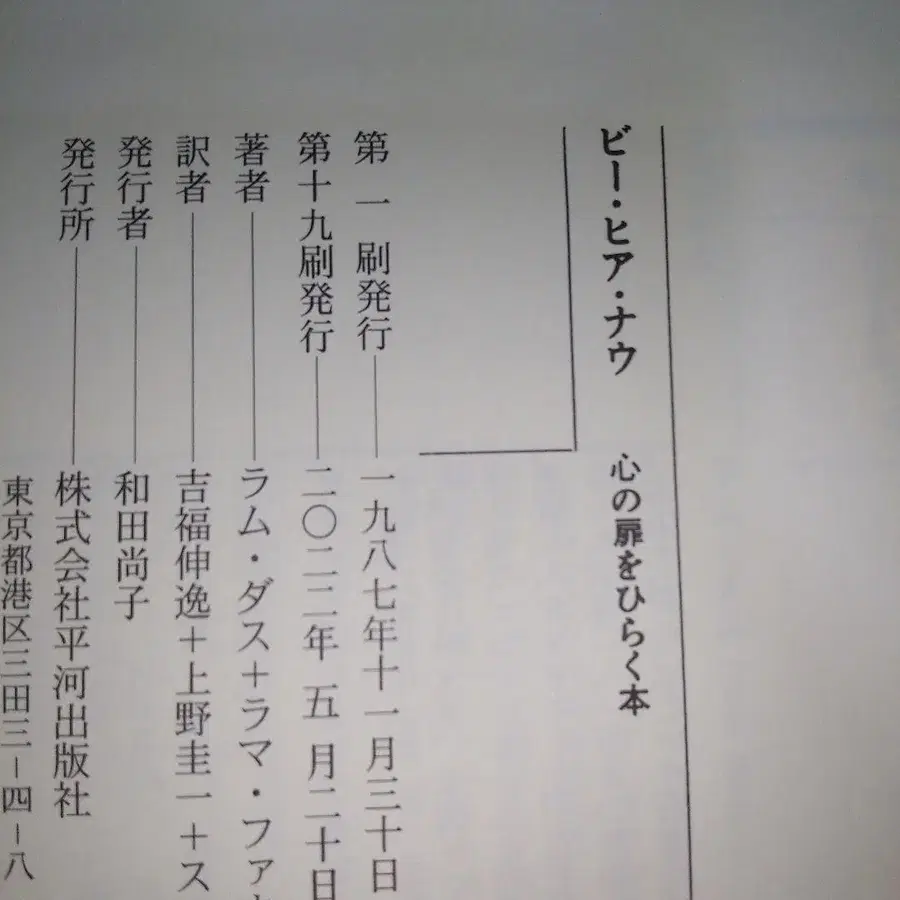 ビー・ヒア・ナウ 心の扉をひらく本
第一刷発行――一九八七年十一月三十日
第十九刷発行――二〇二二年五月二十日
著者――ラム・ダス+ラマ・ファ
訳者――吉福伸逸+上野圭一+ス
発行者――和田尚子
発行所――株式会社平河出版社
東京都港区三田三-四-八